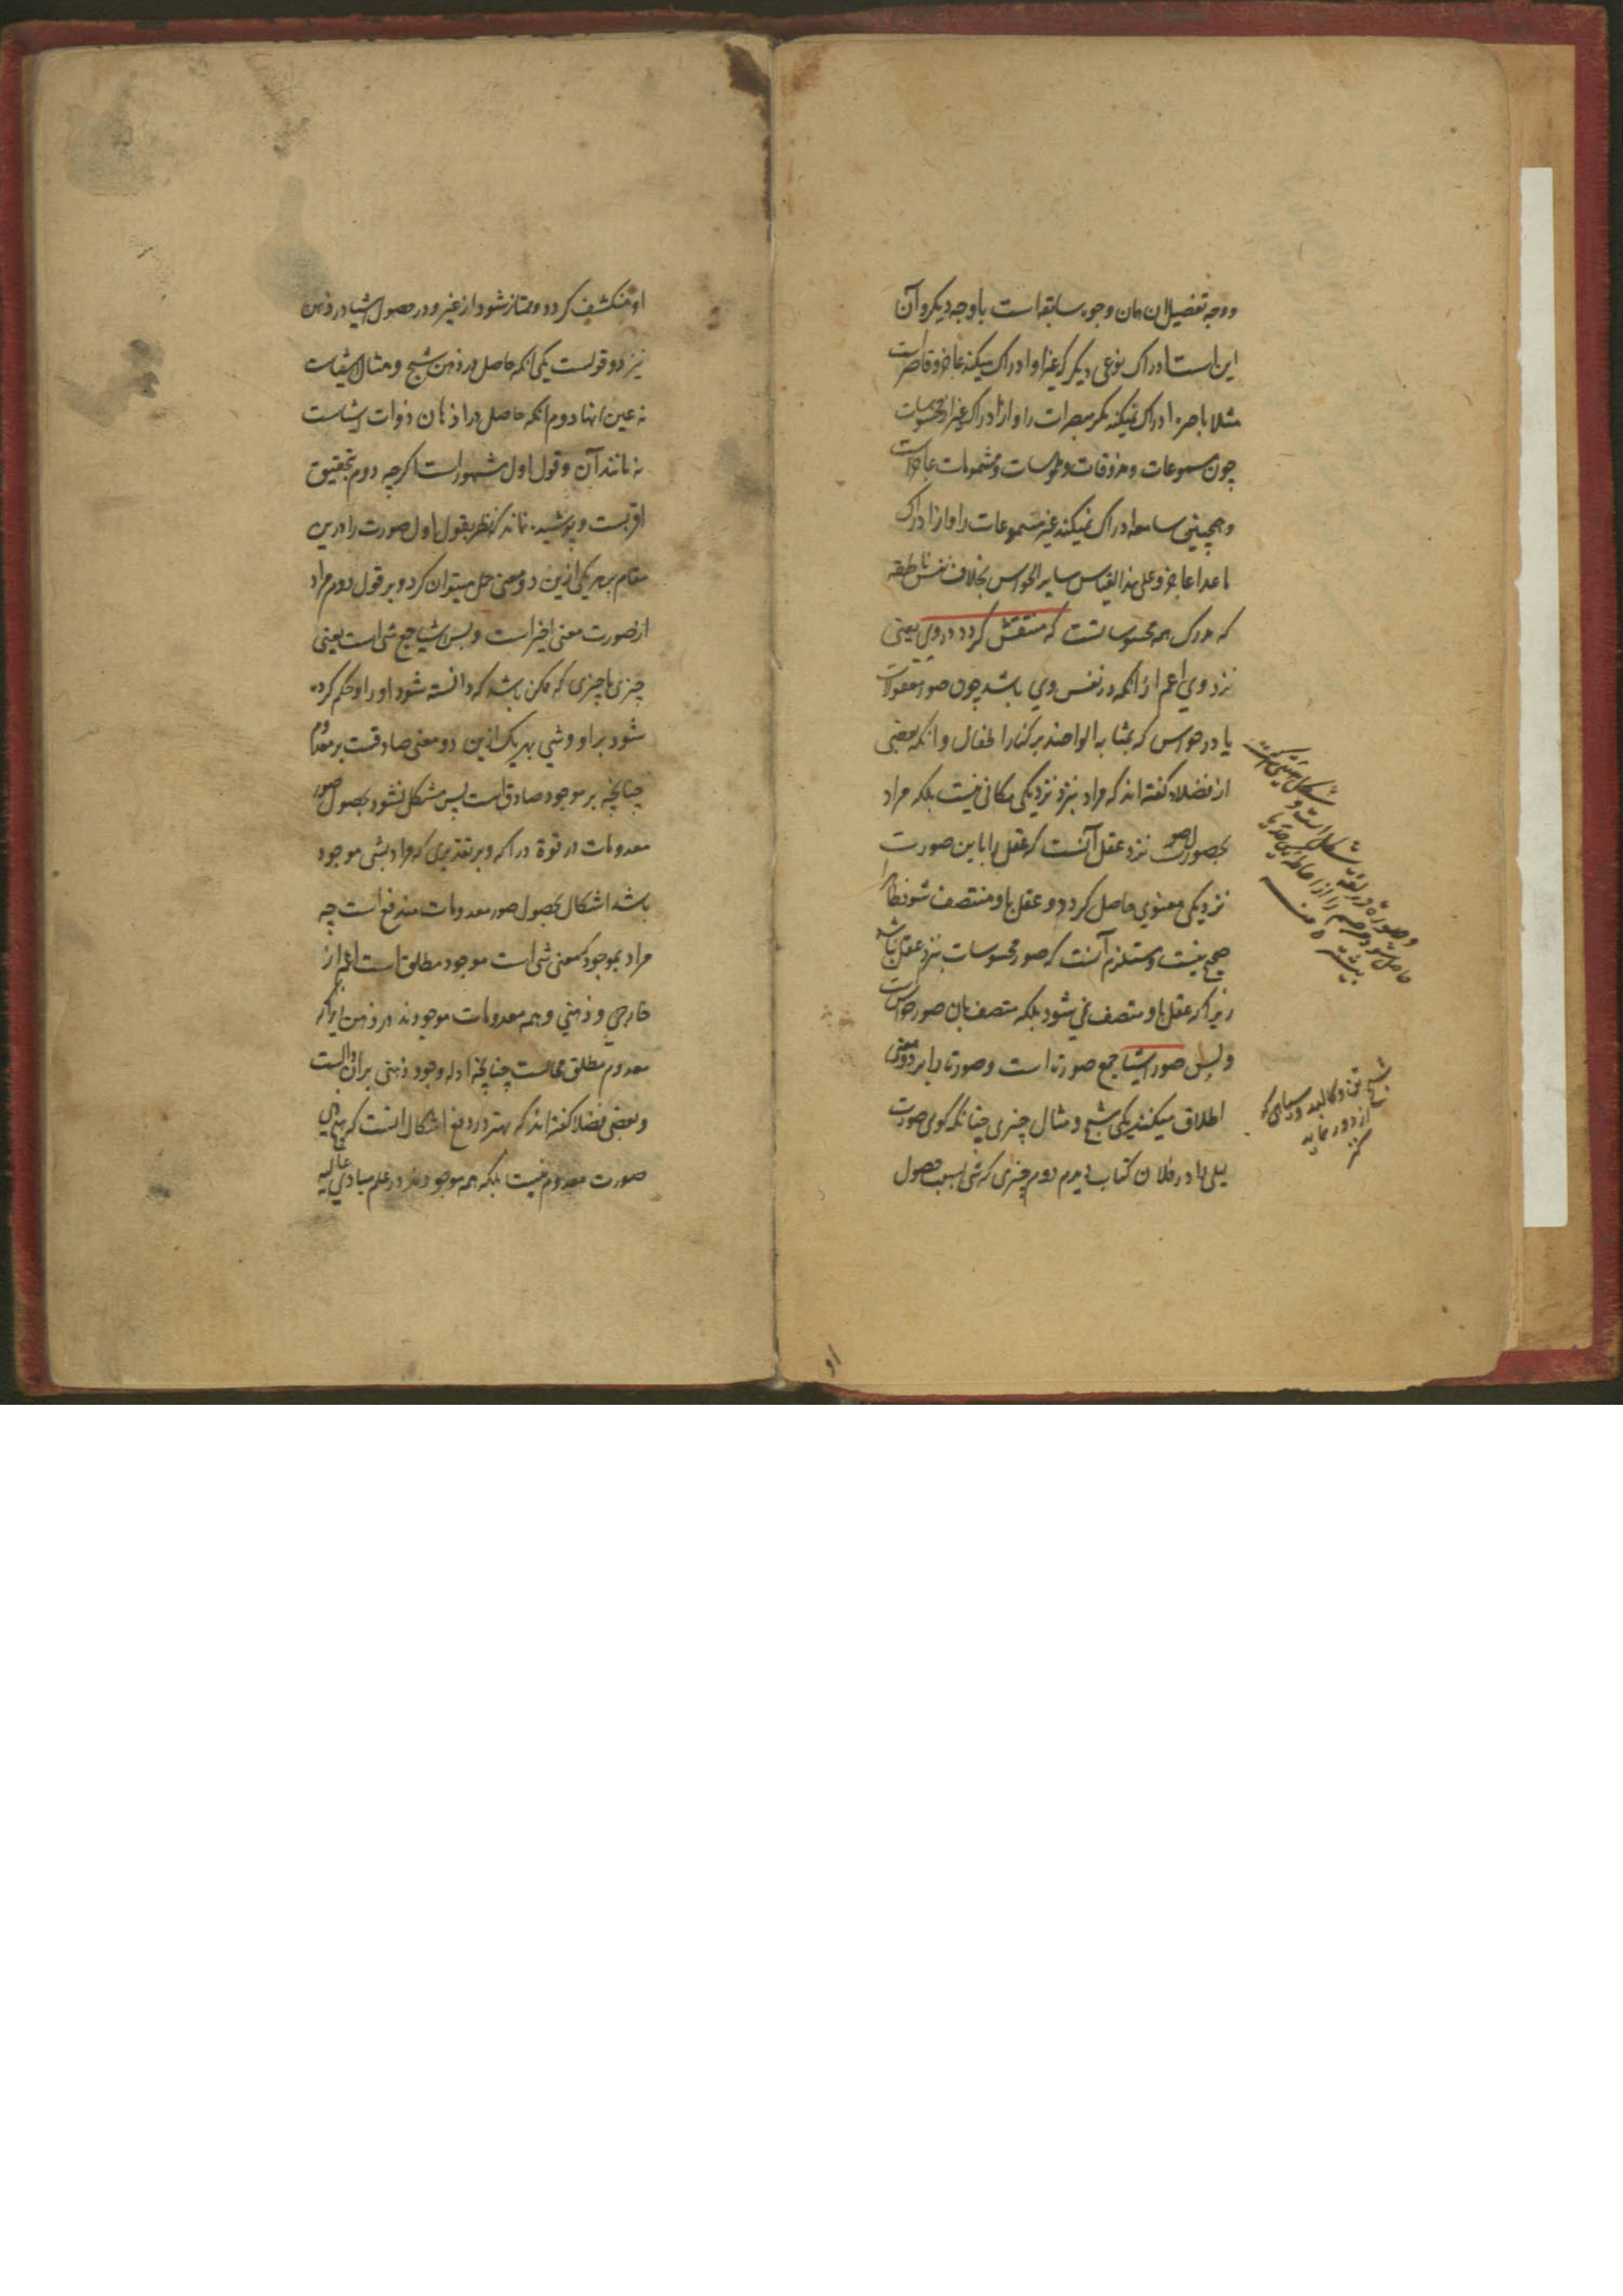 ووجه تفضیل ان همان وجوه سابقه است باوجه دیکر و آن
این است ادراک نوعی دیکر که غیر او ادراک میکند عاجز و قاصر است
مثلا باصره ادراک نمیکند مکر مبصرات را و از ادراک غیر از محسوسات
چون مسموعات و مذوقات و ملموسات و مشمومات عاجز است
و همچنین سامعه ادراک نمیکند غیر مسموعات را و از ادراک
ماعدا عاجز و علی هذا القیاس سایر الحواس بخلاف نفس ناطقه
که مدرک همه محسوساتست که منتقش کردد در وی یعنی
نزد وی اعم از انکه در نفس وی باشد چون صور معقولات
یا در حواس که بمثابه الواحند بر کنار اطفال و انکه بعضی
از فضلاء کفته اند که مراد بنزد نزدیکی مکانی نیست بلکه مراد
بحصول صورت نزد عقل آنست که عقل را باین صورت
نزدیکی معنوی حاصل کردد و عقل باو متصف شود ظاهرا
صحیح نیست و مستلزم آنست که صور محسوسات بنزد عقل نباشد
زیرا که عقل باو متصف نمی شود بلکه متصف بان صور حواس است
و بس صور اشیا جمع صورت است و صورت را بر دو معنی
اطلاق میکنند یکی شبح و مثال چیزی چنانکه کوی صورت
لیلی را در فلان کتاب دیدم دوم چیزی که شی بسبب حصول
شکل است و
وصورة در لغة
شبح تن و کالبد و سیاهی که
از دور نماید
کنز
او منکشف کردد و ممتاز شود از غیر و در حصول اشیا در ذهن
نیز دو قولست یکی انکه حاصل در ذهن شبح و مثال اشیاست
نه عین انها دوم انکه حاصل در اذهان ذوات اشیاست
نه مانند آن و قول اول مشهور است اکرچه دوم بتحقیق
اقربست و پوشیده نماند که نظر بقول اول صورت را درین
مقام بر هر یکی ازین دو معنی حمل میتوان کرد و بر قول دوم مراد
از صورت معنی اخیر است و بس اشیا جمع شی است یعنی
چیزی یا چیزی که ممکن باشد که دانسته شود او را و حکم کرده
شود بر او و شی بهر یک ازین دو معنی صادقست بر معدوم
چنانچه بر موجود صادق است پس مشکل نشود بحصول صور
معدومات در قوة دراکه و بر تقدیری که مراد بشی موجود
باشد اشکال بحصول صور معدومات مندفع است چه
مراد بموجود که معنی شی است موجود مطلق است اعم از
خارجی و ذهنی و همه معدومات موجودند در ذهن زیراکه
معدوم مطلق محالست چنانچه ادله وجود ذهنی بران دالست
و بعضی فضلا کفته اند که بهتر در دفع اشکال انست که هیچ
صورت معدوم نیست بلکه همه موجودند در علم مبادی عالیه